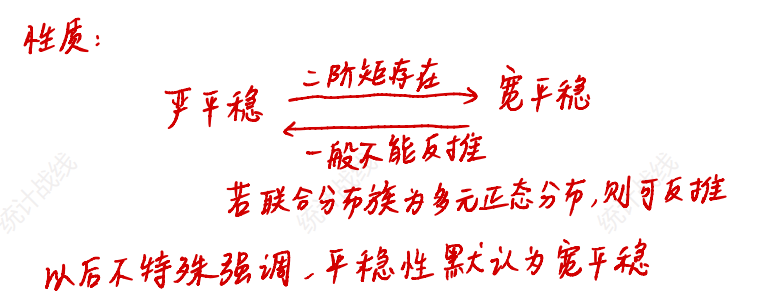 性质：
二阶矩存在
严平稳 宽平稳
一般不能反推
若联合分布族为多元正态分布，则可反推
以后不特殊强调，平稳性默认为宽平稳
统计战线
统计战线
统计战线